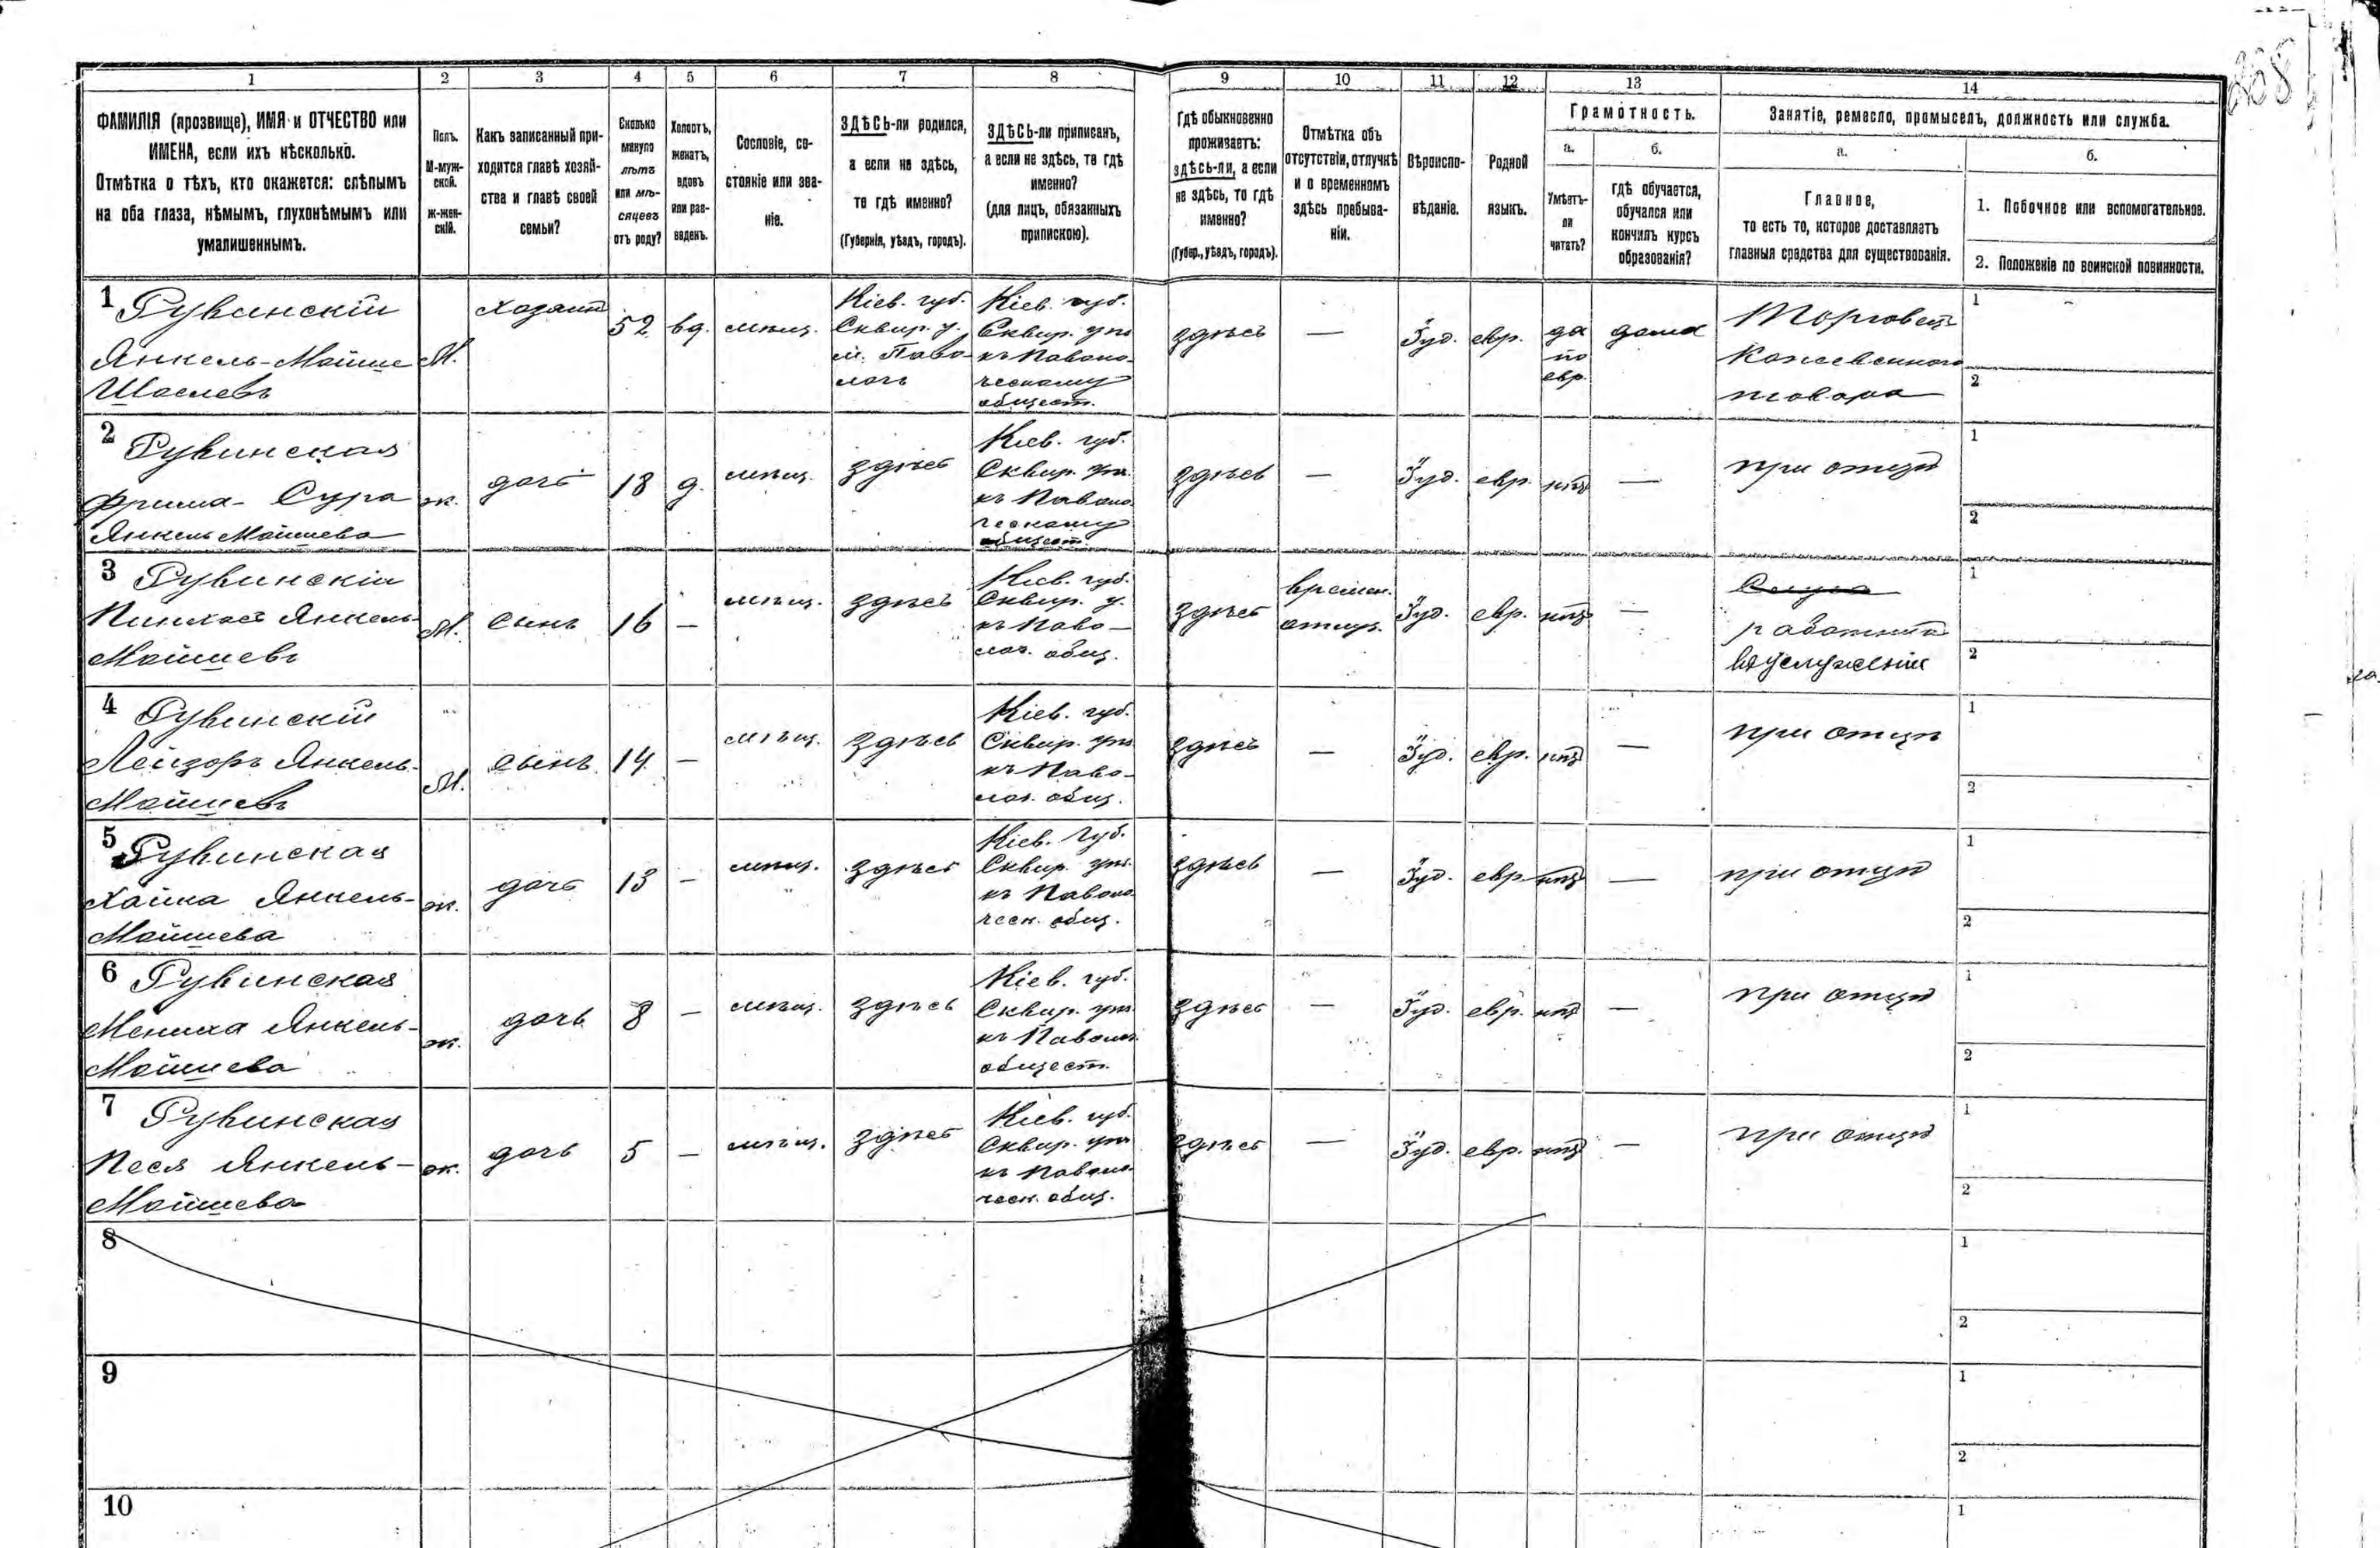 1 2 3 4 5 6 7 8 9 10 11 12 13 14
ФАМИЛІЯ (прозвище), ИМЯ и ОТЧЕСТВО или
ИМЕНА, если ихъ нѣсколько.
Отмѣтка о тѣхъ, кто окажется: слѣпымъ
на оба глаза, нѣмымъ, глухонѣмымъ или
умалишеннымъ.
Полъ.
М-муж-
ской.
Ж-жен-
скій.
Какъ записанный при-
ходится главѣ хозяй-
ства и главѣ своей
семьи?
Сколько
минуло
лѣтъ
или мѣ-
сяцевъ
отъ роду?
Холостъ,
женатъ,
вдовъ
или раз-
веденъ.
Сословіе, со-
стояніе или зва-
ніе.
ЗДѢСЬ-ли родился,
а если не здѣсь,
то гдѣ именно?
(Губернія, уѣздъ, городъ).
ЗДѢСЬ-ли приписанъ,
а если не здѣсь, то гдѣ
именно?
(для лицъ, обязанныхъ
припискою).
Гдѣ обыкновенно
проживаетъ:
здѣсь-ли, а если
не здѣсь, то гдѣ
именно?
(Губер., уѣздъ, городъ).
Отмѣтка объ
отсутствіи, отлучкѣ
и о временномъ
здѣсь пребыва-
ніи.
Вѣроиспо-
вѣданіе.
Родной
языкъ.
Грамотность.
а.
Умѣетъ-
ли
читать?
б.
гдѣ обучается,
обучался или
кончилъ курсъ
образованія?
Занятіе, ремесло, промыселъ, должность или служба.
а.
Главное,
то есть то, которое доставляетъ
главныя средства для существованія.
б.
1. Побочное или вспомогательное.
2. Положеніе по воинской повинности.
1 Рувинскій
Янкель-Мойше
Шаелевъ
М.
хозяинъ
52
вд.
мѣщ.
Кіев. губ.
Сквир. у.
м. Паво-
лочь
Кіев. губ.
Сквир. уѣз
къ Паволо-
ческому
общест.
здѣсь
—
Іуд.
евр.
да
по
евр.
дома
Торговецъ
Кожевеннаго
товара
1
2
2 Рувинская
Фрима-Сура
Янкель Мошиева
ж.
дочь
18
д.
мѣщ.
здѣсь
Кіев. губ.
Сквир. уѣз.
къ Паволо-
ческому
общест.
здѣсь
—
Іуд.
евр.
нѣтъ
—
при отцѣ
1
2
3 Рувинскій
Пинхасъ Янкель-
Мошиевъ
М.
сынъ
16
—
мѣщ.
здѣсь
Кіев. губ.
Сквир. у.
къ Паво-
лоч. общ.
здѣсь
времен.
отлуч.
Іуд.
евр.
нѣтъ
—
работникъ
въ услуженіи
1
2
4 Рувинскій
Лейзоръ Янкель-
Мошиевъ
М.
сынъ
14
—
мѣщ.
здѣсь
Кіев. губ.
Сквир. уѣз.
къ Паво-
лоч. общ.
здѣсь
—
Іуд.
евр.
нѣтъ
—
при отцѣ
1
2
5 Рувинская
Хайка Янкель-
Мошиева
ж.
дочь
13
—
мѣщ.
здѣсь
Кіев. губ.
Сквир. уѣз.
къ Паволо-
ческ. общ.
здѣсь
—
Іуд.
евр.
нѣтъ
—
при отцѣ
1
2
6 Рувинская
Мениха Янкель-
Мошиева
ж.
дочь
8
—
мѣщ.
здѣсь
Кіев. губ.
Сквир. уѣз.
къ Паволоч.
общест.
здѣсь
—
Іуд.
евр.
нѣтъ
—
при отцѣ
1
2
7 Рувинская
Песя Янкель-
Мошиева
ж.
дочь
5
—
мѣщ.
здѣсь
Кіев. губ.
Сквир. уѣз.
къ Паволо-
ческ. общ.
здѣсь
—
Іуд.
евр.
нѣтъ
—
при отцѣ
1
2
8
1
2
9
1
2
10
1